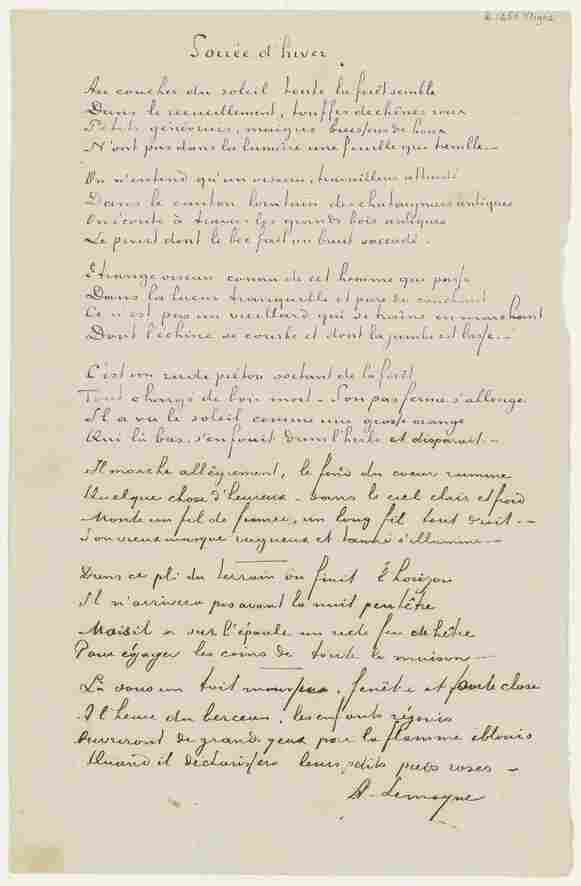 Soirée d'hiver
Au coucher du soleil toute la forêt semble
Dans le recueillement, touffes de chênes roux
Petits genévriers, maigres buissons de houx
N'ont pas dans la lumière une feuille qui tremble.
On n'entend qu'un oiseau, travailleur attardé
Dans le canton lointain des chataigniers antiques
On écoute à travers les grands bois
Le pivert dont le bec fait un bruit saccadé.
Etrange oiseau connu de cet homme qui passe
Dans la lueur tranquille et pure du couchant
Ce n'est pas un vieillard qui se traine en marchant
Dont l'échine se courbe et dont la jambe est lasse. -
C'est un rude piéton sortant de la forêt
Tout chargé de bois mort - Son pas ferme s'allonge
Il a vu le soleil comme une grosse orange
Qui là bas s'enfouit dans l'herbe et disparait -
Il marche allègrement, le fond du coeur rumine
Quelque chose d'heureux - Dans le ciel clair et froid
Monte un fil de fumée, un long fil tout droit - -
Son vieux masque rugueux et tanné s'illumine -
Dans ce pli du terrain où finit l'horizon
Il n'arrivera pas avant la nuit peut être
Mais il a sur l'épaule un feu de hêtre
Pour égayer les coins de toute la maison -
Là sous un toit, fenêtre et porte close
A l'heure du berceau, les enfants réjouis
Ouvriront de grands yeux par la flamme éblouis
Quand il leurs petits pieds roses -
A. Lemoyne